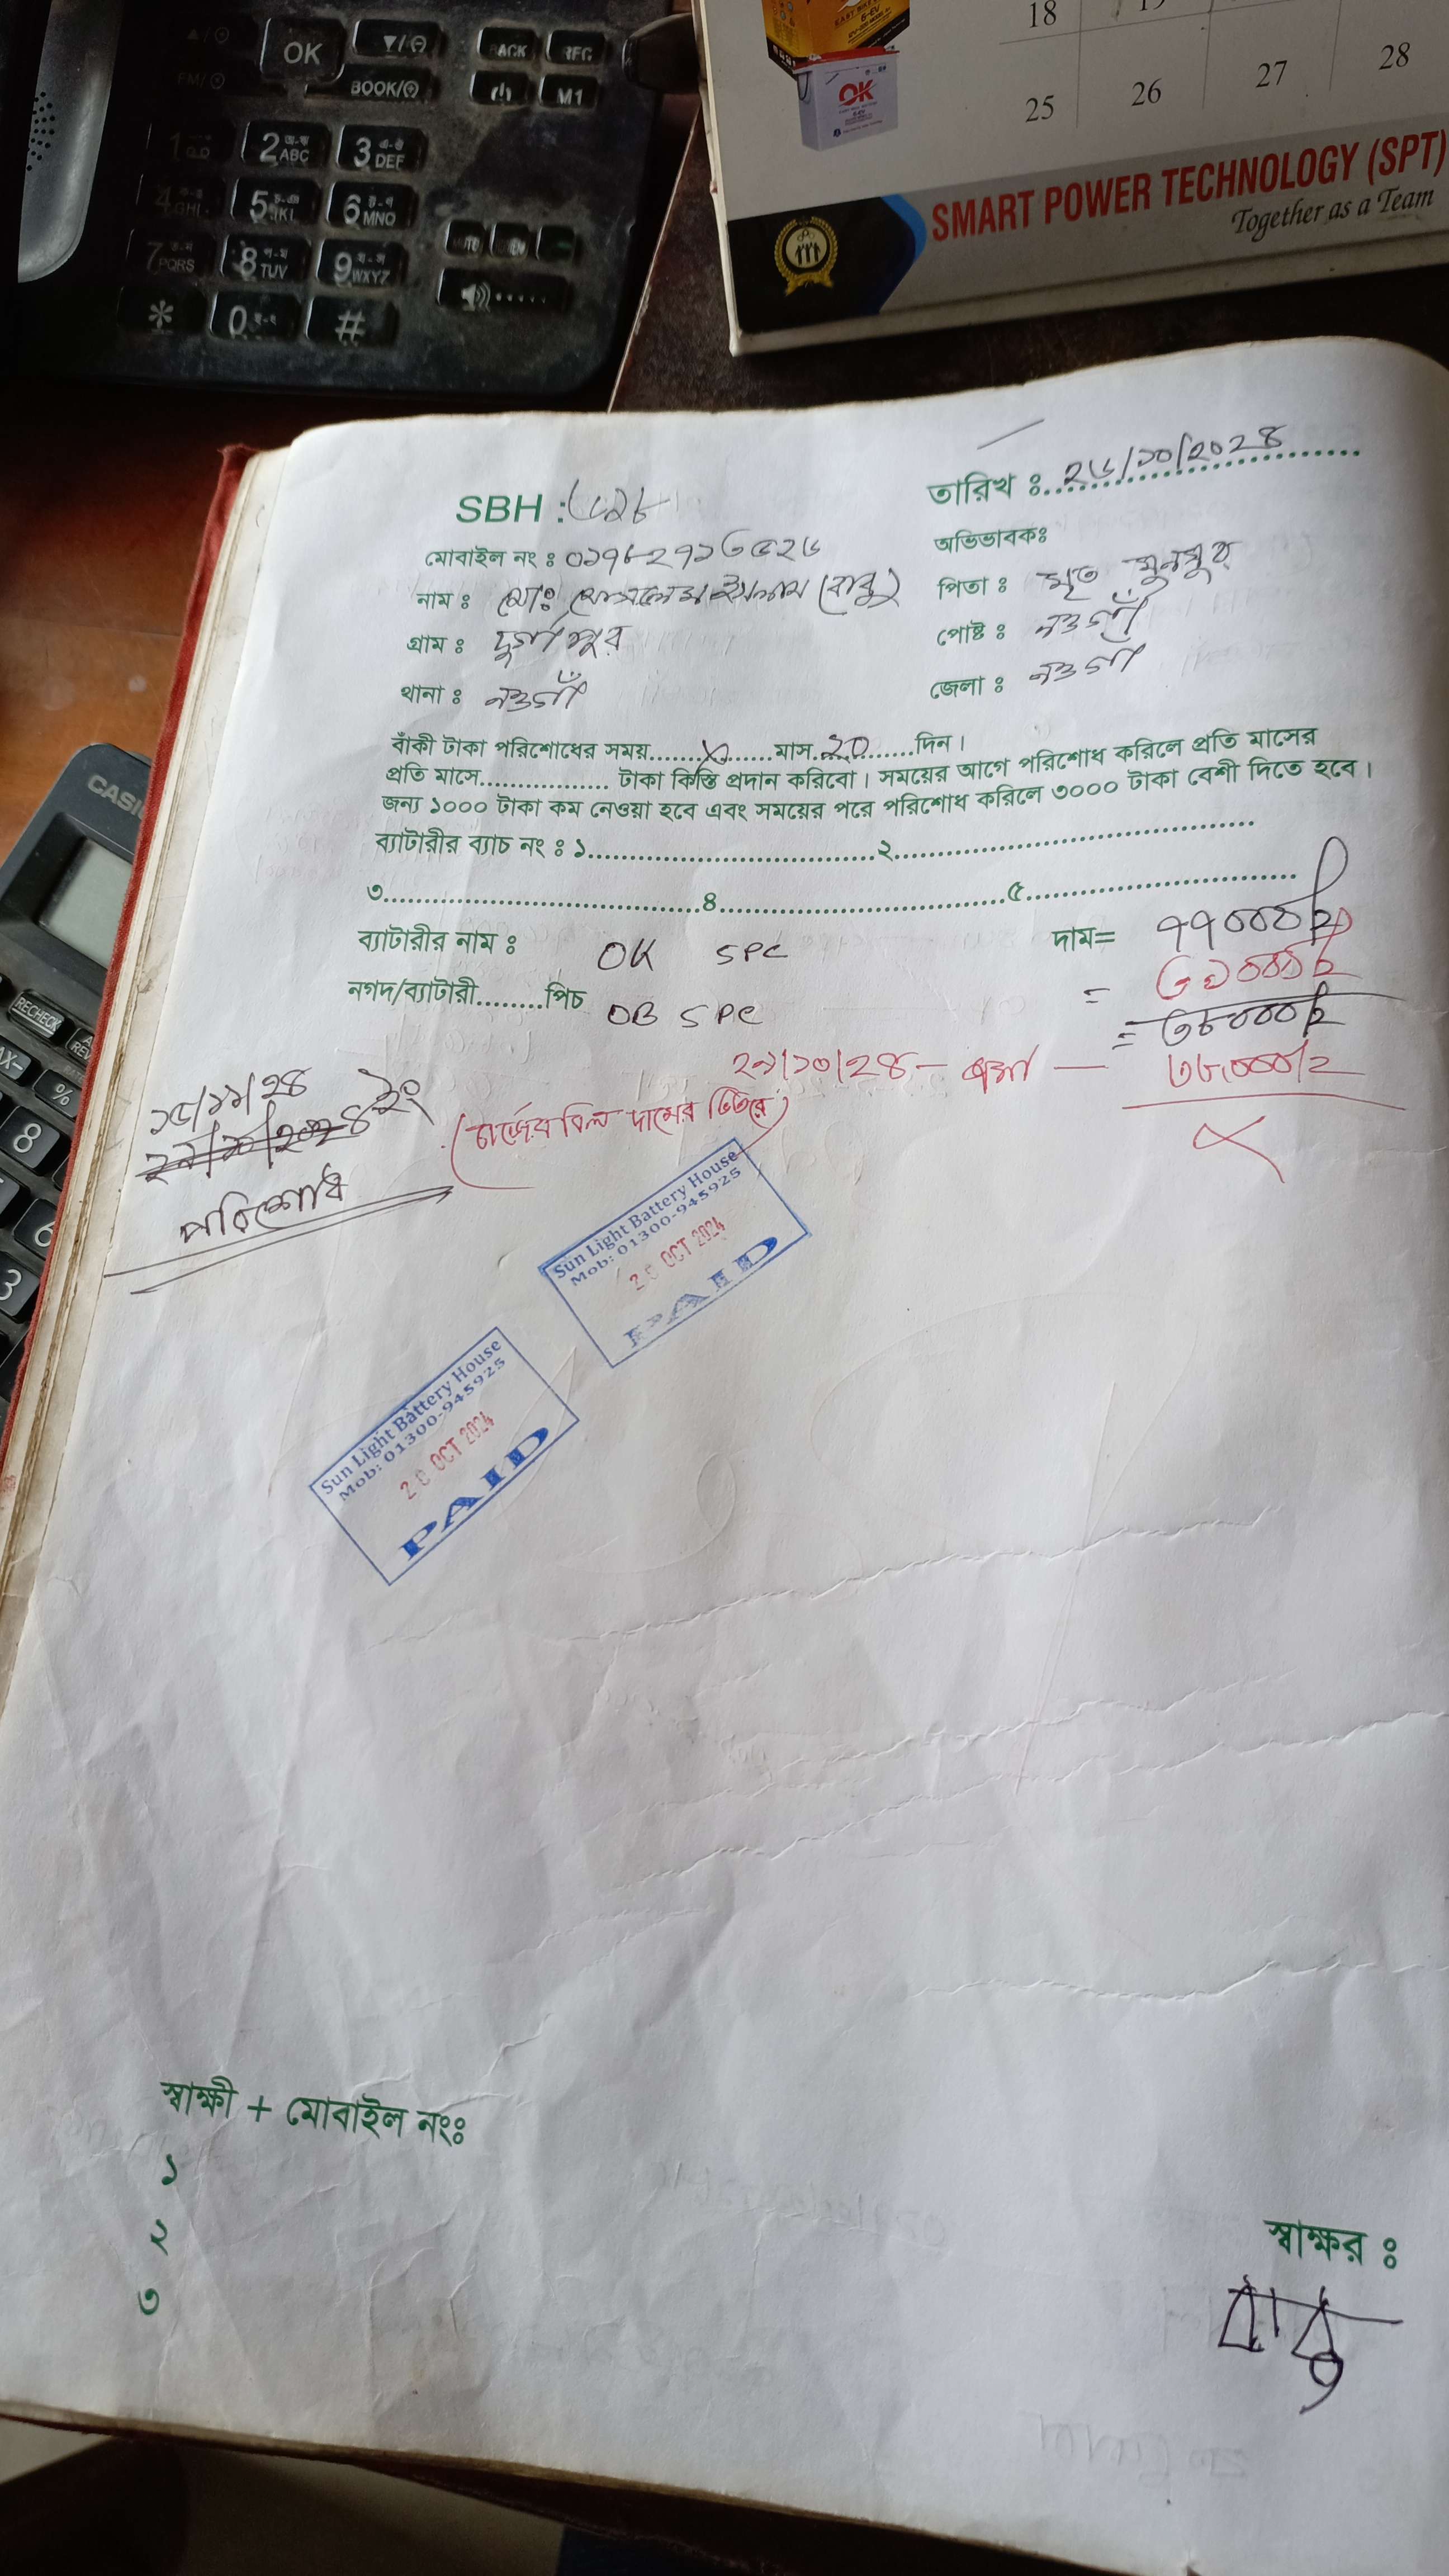 OK
▼/⊖
BACK
REC
BOOK/⊕
M1
2 ABC
3 DEF
4 GHI
5 JKL
6 MNO
7 PQRS
8 TUV
9 WXYZ
*
0
#
18
19
25
26
27
28
OK
SMART POWER TECHNOLOGY (SPT)
Together as a Team
SBH :
তারিখ ঃ ২৬/১০/২০২৪
মোবাইল নং ঃ
অভিভাবকঃ
নাম ঃ মোঃ (বাবু)
পিতা ঃ মৃত মুনসুর
গ্রাম ঃ দুর্গাপুর
পোষ্ট ঃ নওগাঁ
থানা ঃ নওগাঁ
জেলা ঃ নওগাঁ
বাঁকী টাকা পরিশোধের সময়.......×.......মাস..20......দিন।
প্রতি মাসে.................. টাকা কিস্তি প্রদান করিবো। সময়ের আগে পরিশোধ করিলে প্রতি মাসের
জন্য ১০০০ টাকা কম নেওয়া হবে এবং সময়ের পরে পরিশোধ করিলে ৩০০০ টাকা বেশী দিতে হবে।
ব্যাটারীর ব্যাচ নং ঃ ১........................................২..................................................
৩.............................................৪..........................................৫......................................
ব্যাটারীর নাম ঃ OK 5PC
দাম= ৭৭০০০/=
নগদ/ব্যাটারী........পিচ OB 5PC
= ৩৮০০০/=
২৯/১০/২৪ - জমা — ৩৮০০০/=
(চার্জের বিল দামের ভিতরে)
১৫/১১/২৪
ইং
পরিশোধ
Sun Light Battery House
Mob: 01300-945925
OCT 2024
PAID
Sun Light Battery House
Mob: 01300-945925
OCT 2024
PAID
CASIO
RECHECK
%
8
6
3
স্বাক্ষী + মোবাইল নংঃ
১
২
৩
স্বাক্ষর ঃ
বাবু